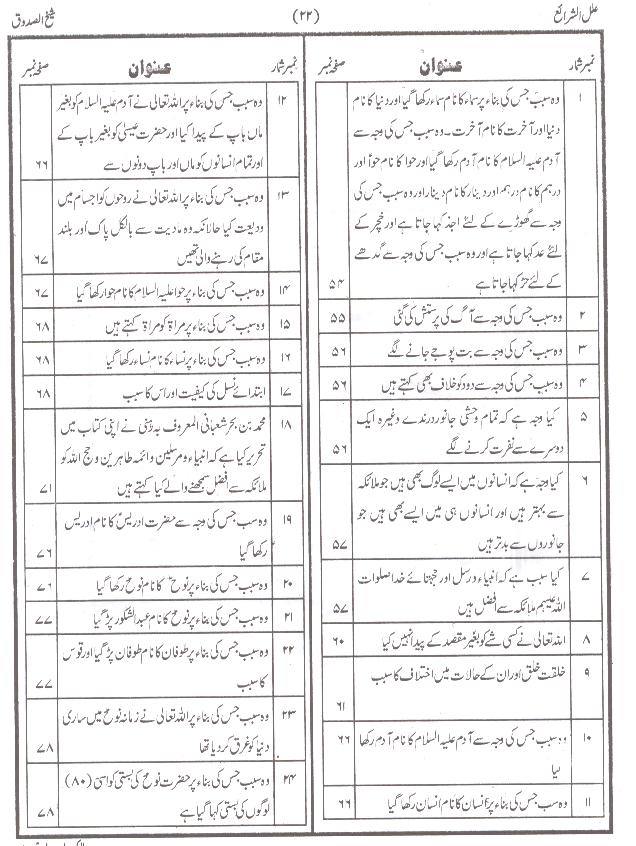 علل الشرائع (۲۲) شیخ الصدوق
نمبر شمار عنوان صفحہ نمبر
۱ وہ سبب جس کی بناء پر سماء کا نام سماء رکھا گیا اور دنیا کا نام
دنیا اور آخرت کا نام آخرت ۔ وہ سبب جس کی وجہ سے
آدم علیہ السلام کا نام آدم رکھا گیا اور حوا کا نام حوّا اور
درہم کا نام درہم اور دینار کا نام دینار اور وہ سبب جس کی
وجہ سے گھوڑے کے لئے اجد کہا جاتا ہے اور خچر کے
لئے عد کہا جاتا ہے اور وہ سبب جس کی وجہ سے گدھے
کے لئے حر کہا جاتا ہے ۵۴
۲ وہ سبب جس کی وجہ سے آگ کی پرستش کی گئی ۵۵
۳ وہ سبب جس کی وجہ سے بت پوجے جانے لگے ۵۶
۴ وہ سبب جس کی وجہ سے دود کو خلاف بھی کہتے ہیں ۵۶
۵ کیا وجہ ہے کہ تمام وحشی جانور درندے وغیرہ ایک
دوسرے سے نفرت کرنے لگے ۵۶
۶ کیا وجہ ہے کہ انسانوں میں ایسے لوگ بھی ہیں جو ملائکہ
سے بہتر ہیں اور انسانوں ہی میں ایسے بھی ہیں جو
جانوروں سے بدتر ہیں ۵۷
۷ کیا سبب ہے کہ انبیاء و رسل اور حجتہائے خدا صلوات
اللہ علیہم ملائکہ سے افضل ہیں ۵۷
۸ اللہ تعالی نے کسی شے کو بغیر مقصد کے پیدا نہیں کیا ۶۰
۹ خلقت خلق اور ان کے حالات میں اختلاف کا سبب
۶۱
۱۰ وہ سبب جس کی وجہ سے آدم علیہ السلام کا نام آدم رکھا ۶۶
گیا
۱۱ وہ سبب جس کی بناء پر انسان کا نام انسان رکھا گیا ۶۶
نمبر شمار عنوان صفحہ نمبر
۱۲ وہ سبب جس کی بناء پر اللہ تعالی نے آدم علیہ السلام کو بغیر
ماں باپ کے پیدا کیا اور حضرت عیسیٰ کو بغیر باپ کے
اور تمام انسانوں کو ماں اور باپ دونوں سے ۶۶
۱۳ وہ سبب جس کی بناء پر اللہ تعالی نے روحوں کو اجسام میں
ودیعت کیا حالانکہ وہ مادیت سے بالکل پاک اور بلند
مقام کی رہنے والی تھیں ۶۷
۱۴ وہ سبب جس کی بناء پر حوا علیہ السلام کا نام حوا رکھا گیا ۶۷
۱۵ وہ سبب جس کی بناء پر مراۃ کو مراۃ کہتے ہیں ۶۸
۱۶ وہ سبب جس کی بناء پر نساء کا نام نساء رکھا گیا ۶۸
۱۷ ابتدائے نسل کی کیفیت اور اس کا سبب ۶۸
۱۸ محمد بن بحر شعبانی المعروف بہ رھنی نے اپنی کتاب میں
تحریر کیا ہے کہ انبیاء و مرسلین وائمہ طاہرین و حجج اللہ کو
ملائکہ سے افضل سمجھنے والے کیا کہتے ہیں ۷۱
۱۹ وہ سبب جس کی وجہ سے حضرت ادریسؑ کا نام ادریس
رکھا گیا ۷۶
۲۰ وہ سبب جس کی بناء پر نوحؑ کا نام نوح رکھا گیا ۷۶
۲۱ وہ سبب جس کی بناء پر نوحؑ کا نام عبدالشکور پڑ گیا ۷۷
۲۲ وہ سبب جس کی بناء پر طوفان کا نام طوفان پڑ گیا اور قوس
کا سبب ۷۷
۲۳ وہ سبب جس کی بناء پر اللہ تعالی نے زمانہ نوحؑ میں ساری
دنیا کو غرق کر دیا تھا ۷۸
۲۴ وہ سبب جس کی بناء پر حضرت نوحؑ کی بستی کو اسی (۸۰)
لوگوں کی بستی کہا گیا ہے ۷۸